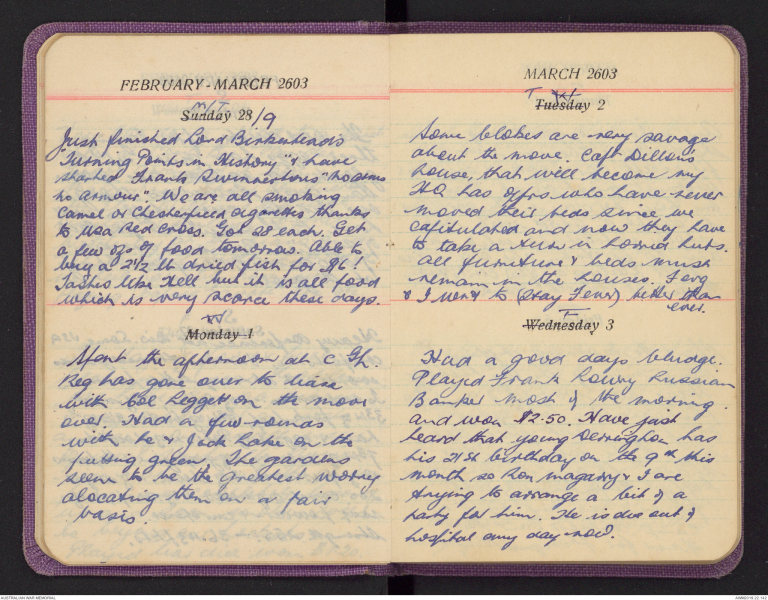 FEBRUARY - MARCH 2603
M/T
Sunday 28/9
Just finished Lord Birkenhead's
"Turning Points in History" & have
started Frank Swinnertons "No arms
no armour". We are all smoking
Camel or Chesterfield cigarettes thanks
to USA Red Cross. Got 28 each. Get
a few ozs of food tomorrow. Able to
buy a 2½ lb dried fish for $6!
Tastes like Hell but it is all food
which is very scarce these days.
Monday 1
Spent the afternoon at C
Reg has gone over to liase
with Col Leggett on the move
over. Had a few rounds
with he & Jack Lake on the
putting green. The gardens
seem to be the greatest worry
alocating them on a fair
basis.
MARCH 2603
T
Tuesday 2
Some blokes are very savage
about the move. Capt Dillon's
house, that will become my
HQ has offrs who have never
moved their beds since we
capitulated and now they have
to take a turn in horrid huts.
All furniture & beds must
remain in the houses. Ferg
& I went to (Stay Fever) better than
ever.
T
Wednesday 3
Had a good days bludge.
Played Frank Lowry Russian
Banker most of the morning
and won $2.50. Have just
heard that young has
his 21st birthday on the 9th this
month so Ron & I are
trying to arrange a bit of a
party for him. He is due out of
hospital any day now.